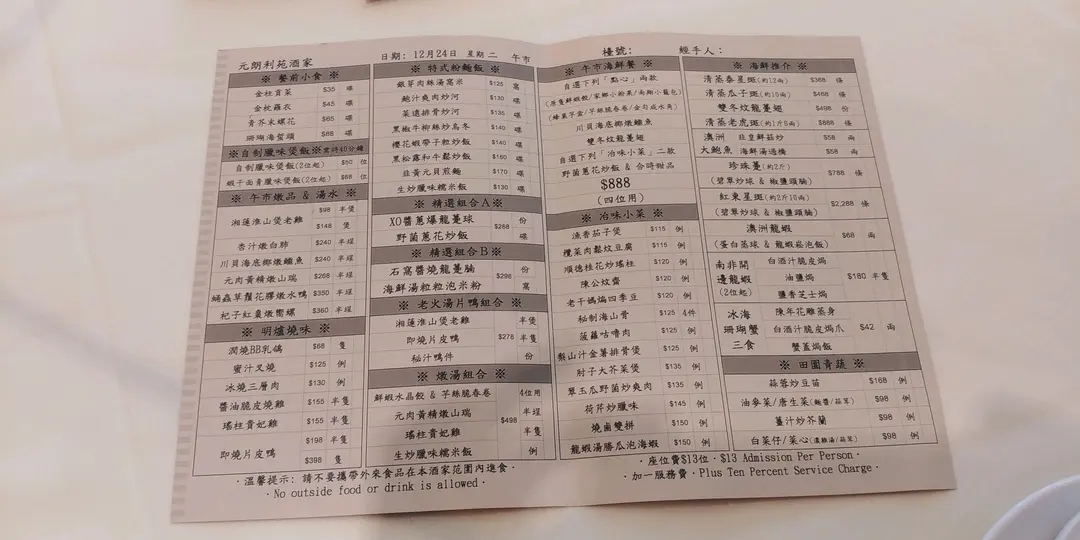 元朗利苑酒家
日期: 12月24日 星期 二 午市
檯號:
經手人:
※ 餐前小食 ※
金枝貢菜 $35 碟
金枝羅衣 $45 碟
青芥末螺花 $65 碟
珊瑚海蜇頭 $68 碟
※自制臘味煲飯※需時40分鐘
自制臘味煲飯(2位起) $50 位
蝦干面青臘味煲飯(2位起) $68 位
※ 午市燉品 & 湯水 ※
湘蓮淮山煲老雞 $98 半煲
$148 煲
杏汁燉白肺 $240 半埕
川貝海底椰燉鱷魚 $240 半埕
元肉黃精燉山瑞 $268 半埕
蟲草鬚花膠燉水鴨 $350 半埕
杞子紅棗燉響螺 $360 半埕
※ 明爐燒味 ※
潤燒BB乳鴿 $68 隻
蜜汁叉燒 $125 例
冰燒三層肉 $130 例
醬油脆皮燒雞 $155 半隻
瑤柱貴妃雞 $155 半隻
即燒片皮鴨 $198 半隻
$398 隻
※ 特式粉麵飯 ※
銀芽肉絲湯窩米 $125 窩
鮑汁爽肉炒河 $130 碟
菜遠排骨炒河 $135 碟
黑椒牛柳絲炒烏冬 $140 碟
櫻花蝦帶子粒炒飯 $140 碟
黑松露和牛鬆炒飯 $160 碟
韭黃元貝煎麵 $170 碟
生炒臘味糯米飯 $130 碟
※ 精選組合A ※
XO醬蔥爆龍躉球 份
野菌蔥花炒飯 $288 碟
※ 精選組合B ※
石窩醬燒龍躉腩 $298 份
海鮮湯粒粒泡米粉 窩
※ 老火湯片鴨組合 ※
湘蓮淮山煲老雞 半煲
即燒片皮鴨 $278 半隻
秘汁鴨件 份
※ 燉湯組合 ※
鮮蝦水晶餃 & 芋絲脆春卷 4位用
元肉黃精燉山瑞 半埕
瑤柱貴妃雞 $498 半隻
生炒臘味糯米飯 例
※ 午市海鮮餐 ※
自選下列「點心」兩款
(原隻鮮蝦餃/家鄉小粉果/南翔小籠包)
(蜂巢芋盒/芋絲脆春卷/金勾咸水角)
川貝海底椰燉鱷魚
雙冬炆龍躉翅
自選下列「冶味小菜」二款
野菌蔥花炒飯 & 合時甜品
$888
(四位用)
※ 冶味小菜 ※
漁香茄子煲 $115 例
欖菜肉鬆炆豆腐 $115 例
順德桂花炒瑤柱 $120 例
陳公炆齋 $120 例
老干媽煸四季豆 $120 例
秘制海山骨 $125 4件
菠蘿咕嚕肉 $125 例
梨山汁金薯排骨煲 $125 例
肘子大芥菜煲 $135 例
翠玉瓜野菌炒爽肉 $135 例
荷芹炒臘味 $145 例
燒鹵雙拼 $150 例
龍蝦湯勝瓜泡海蝦 $150 例
※ 海鮮推介 ※
清蒸泰星斑(約12兩) $368 條
清蒸瓜子斑(約10兩) $468 條
雙冬炆龍躉翅 $498 份
清蒸老虎斑(約1斤8兩) $888 條
澳洲 韭皇鮮菇炒 $58 兩
大鮑魚 海鮮湯過橋 $58 兩
珍珠躉(約2斤)
(碧翠炒球 & 椒鹽頭腩) $788 條
紅東星斑(約2斤10兩)
(碧翠炒球 & 椒鹽頭腩) $2,288 條
澳洲龍蝦
(蛋白蒸球 & 龍蝦崧泡飯) $68 兩
南非開邊龍蝦(2位起)
白酒汁脆皮焗
油鹽焗 $180 半隻
鹽香芝士焗
冰海珊瑚蟹三食
陳年花雕蒸身
白酒汁脆皮焗爪 $42 兩
蟹蓋焗飯
※ 田園青蔬 ※
蒜蓉炒豆苗 $168 例
油麥菜/唐生菜(麵醬/蒜茸) $98 例
薑汁炒芥蘭 $98 例
白菜仔/菜心(濃雞湯/蒜茸) $98 例
·溫馨提示: 請不要攜帶外來食品在本酒家范圍內進食·
·No outside food or drink is allowed·
·座位費$13位·$13 Admission Per Person·
·加一服務費·Plus Ten Percent Service Charge·